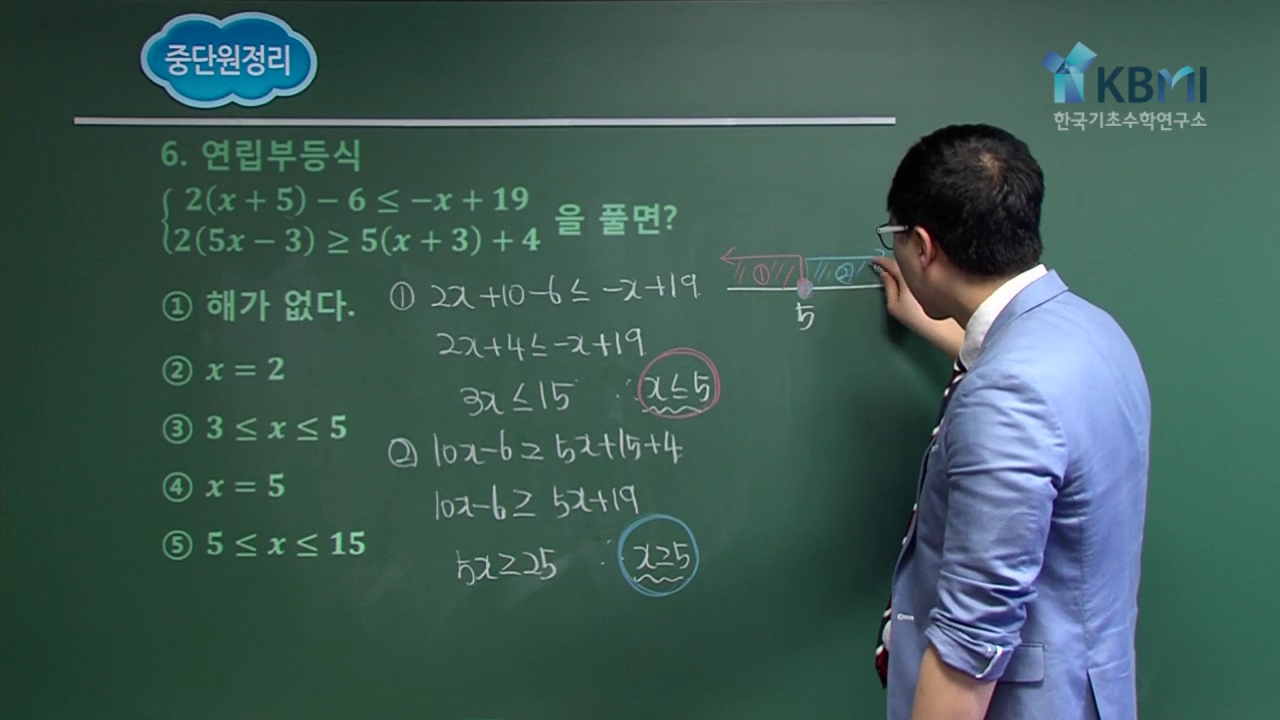 중단원정리
KBMI
한국기초수학연구소
6. 연립부등식
2(x + 5) − 6 ≤ −x + 19
2(5x − 3) ≥ 5(x + 3) + 4
을 풀면?
① 해가 없다.
② x = 2
③ 3 ≤ x ≤ 5
④ x = 5
⑤ 5 ≤ x ≤ 15
① 2x+10-6 ≤ -x+19
2x+4 ≤ -x+19
3x ≤ 15 ∴ x ≤ 5
② 10x-6 ≥ 5x+15+4
10x-6 ≥ 5x+19
5x ≥ 25 ∴ x ≥ 5
① ②
5